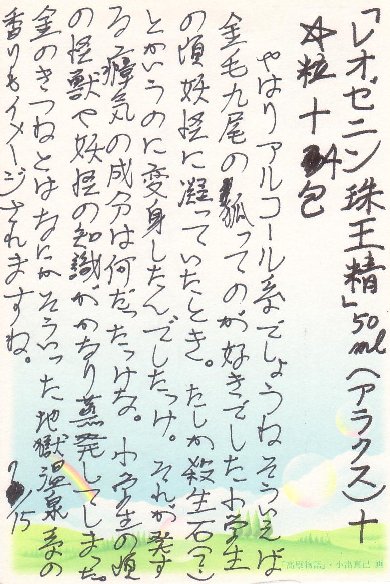 「レオゼニン珠王精」50ml（アラクス）＋
☆粒＋4包
やはりアルコール系でしょうねそういえば
金毛九尾の狐ってのが好きでした小学生
の頃妖怪に凝っていたとき。たしか殺生石(?)
とかいうのに変身したんでしたっけ。それが発す
る瘴気の成分は何だったけな。小学生の頃
の怪獣や妖怪の知識がかなり蒸発してしまった。
金のきつねとはなにかそういった地獄温泉系の
香りもイメージされますね。
7/15
「高原物語」・小出真己 画